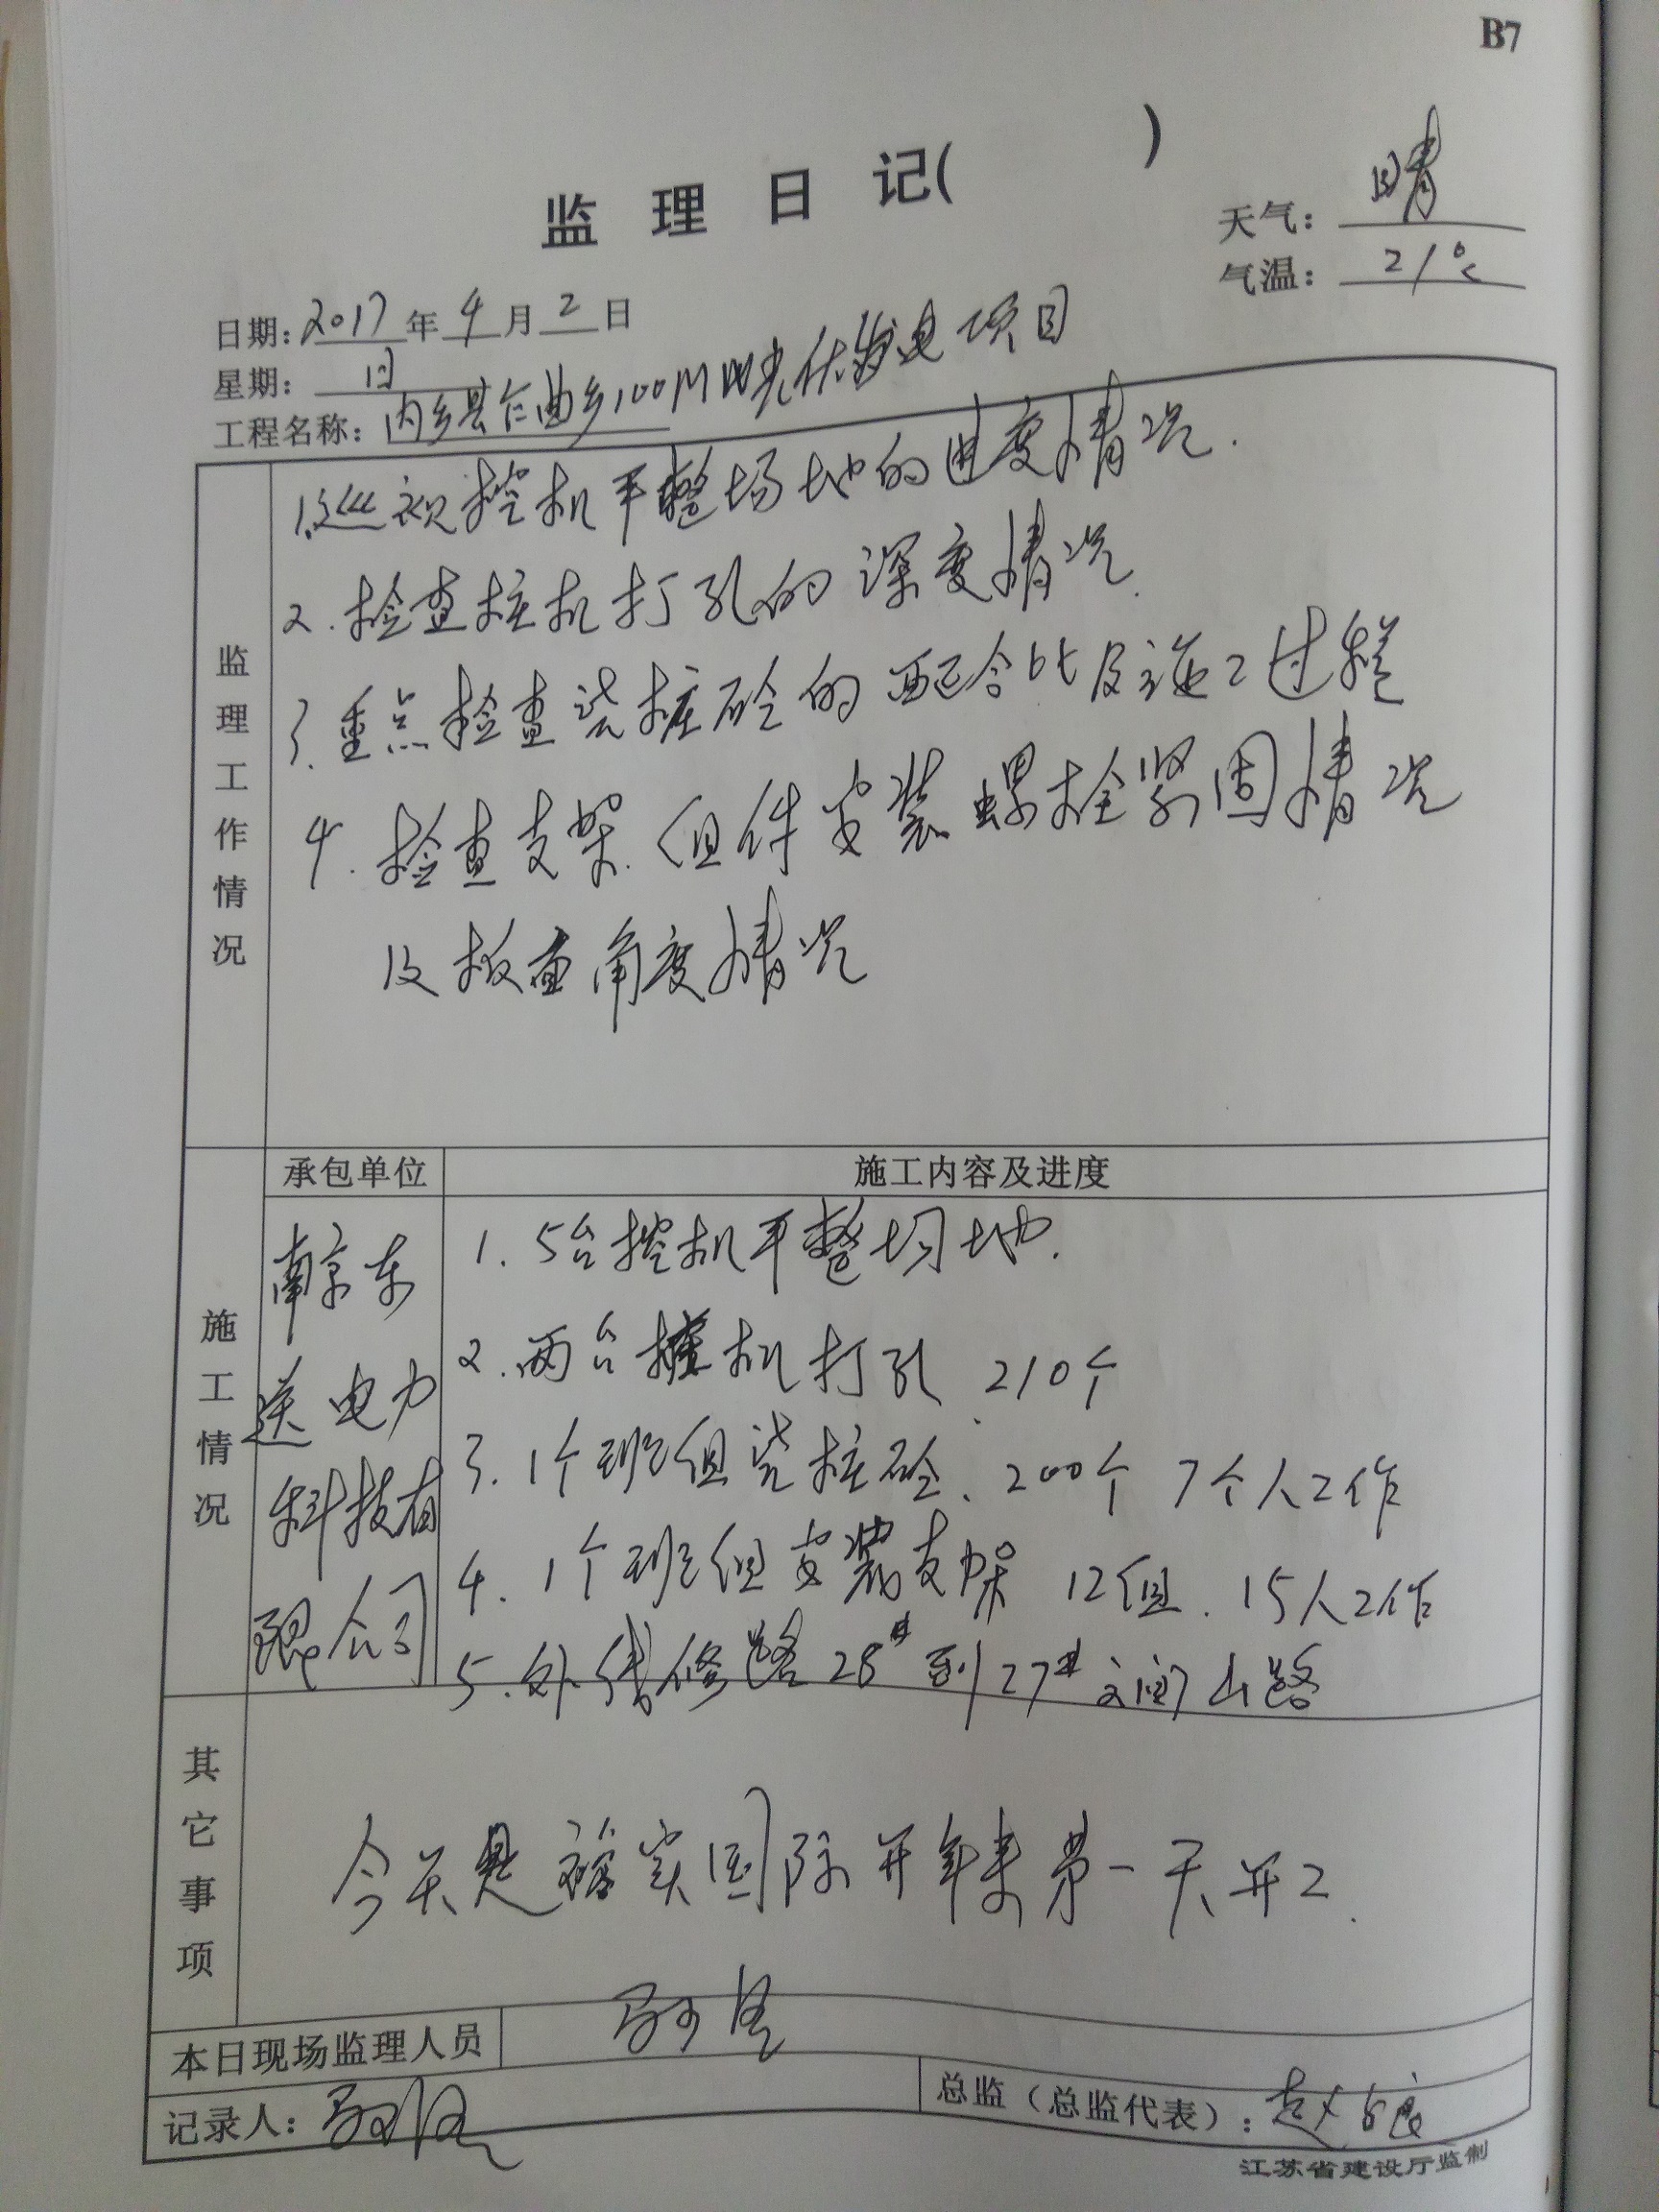 B7
监理日记( )
天气: 晴
气温: 21℃
日期: 2017年4月2日
星期: 日
工程名称: 内乡县仁曲乡100MW光伏发电项目
监理工作情况
1.巡视挖机平整场地的进度情况.
2.检查桩机打孔的深度情况.
3.重点检查浇桩砼的配合比及施工过程
4.检查支架.组件安装螺栓紧固情况
及板面角度情况
施工情况
承包单位
施工内容及进度
南京东
送电力
科技有
限公司
1.5台挖机平整场地.
2.两台桩机打孔.210个
3.1个班组浇桩砼.200个 7个人工作
4.1个班组安装支架 12组.15人工作
5.外线修路28#到27#之间山路
其它事项
今天是 实国际开年来第一天开工.
本日现场监理人员
记录人:
总监(总监代表): 赵
江苏省建设厅监制